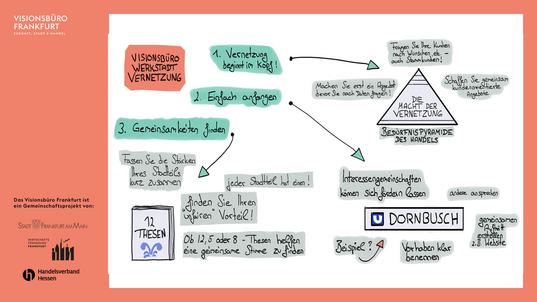 VISIONSBÜRO
FRANKFURT
ZUKUNFT, STADT & HANDEL
VISIONSBÜRO
WERKSTADT
VERNETZUNG
1. Vernetzung
beginnt im Kopf!
2. Einfach anfangen
3. Gemeinsamkeiten finden
Fragen Sie Ihre Kunden
nach Wünschen etc. -
auch Stammkunden!
Machen Sie erst ein Angebot
bevor Sie nach Daten fragen!
Schaffen Sie gemeinsam
kundenorientierte
Angebote
DIE
MACHT DER
VERNETZUNG
BEDÜRFNISPYRAMIDE
DES HANDELS
Fassen Sie die Stärken
Ihres Stadtteils
kurz zusammen
jeder Stadtteil hat einen!
"finden Sie Ihren
unfairen" Vorteil!
12
THESEN
Ob 12, 5 oder 8 - Thesen helfen
eine gemeinsame Stimme zu finden
Interessengemeinschaften
können sich fördern lassen
andere ansprechen
U DORNBUSCH
gemeinsamen
Auftritt
erstellen
z.B. Website
Beispiel?
Vorhaben klar
benennen
Das Visionsbüro Frankfurt ist
ein Gemeinschaftsprojekt von:
STADT FRANKFURT AM MAIN
WIRTSCHAFTS
FÖRDERUNG
FRANKFURT
Handelsverband
Hessen